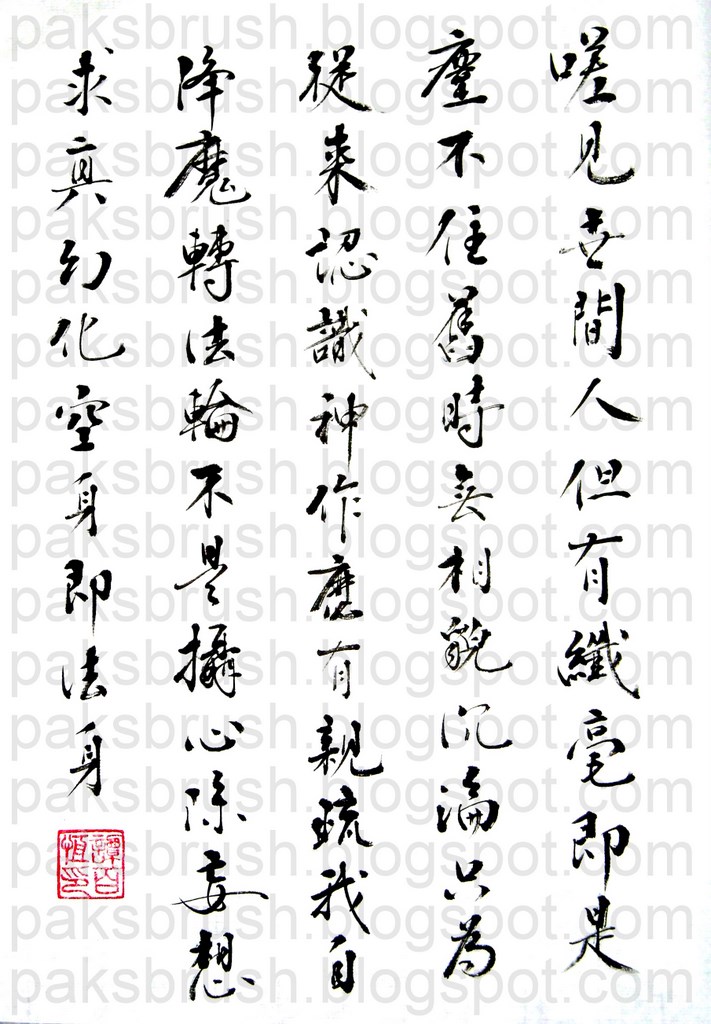 嗟見世間人但有纖毫即是
塵不住舊時無相貌沉淪只為
從来認識神作麼有親疏我自
降魔轉法輪不是攝心除妄想
求真幻化空身即法身
譚百恒印
paksbrush.blogspot.com